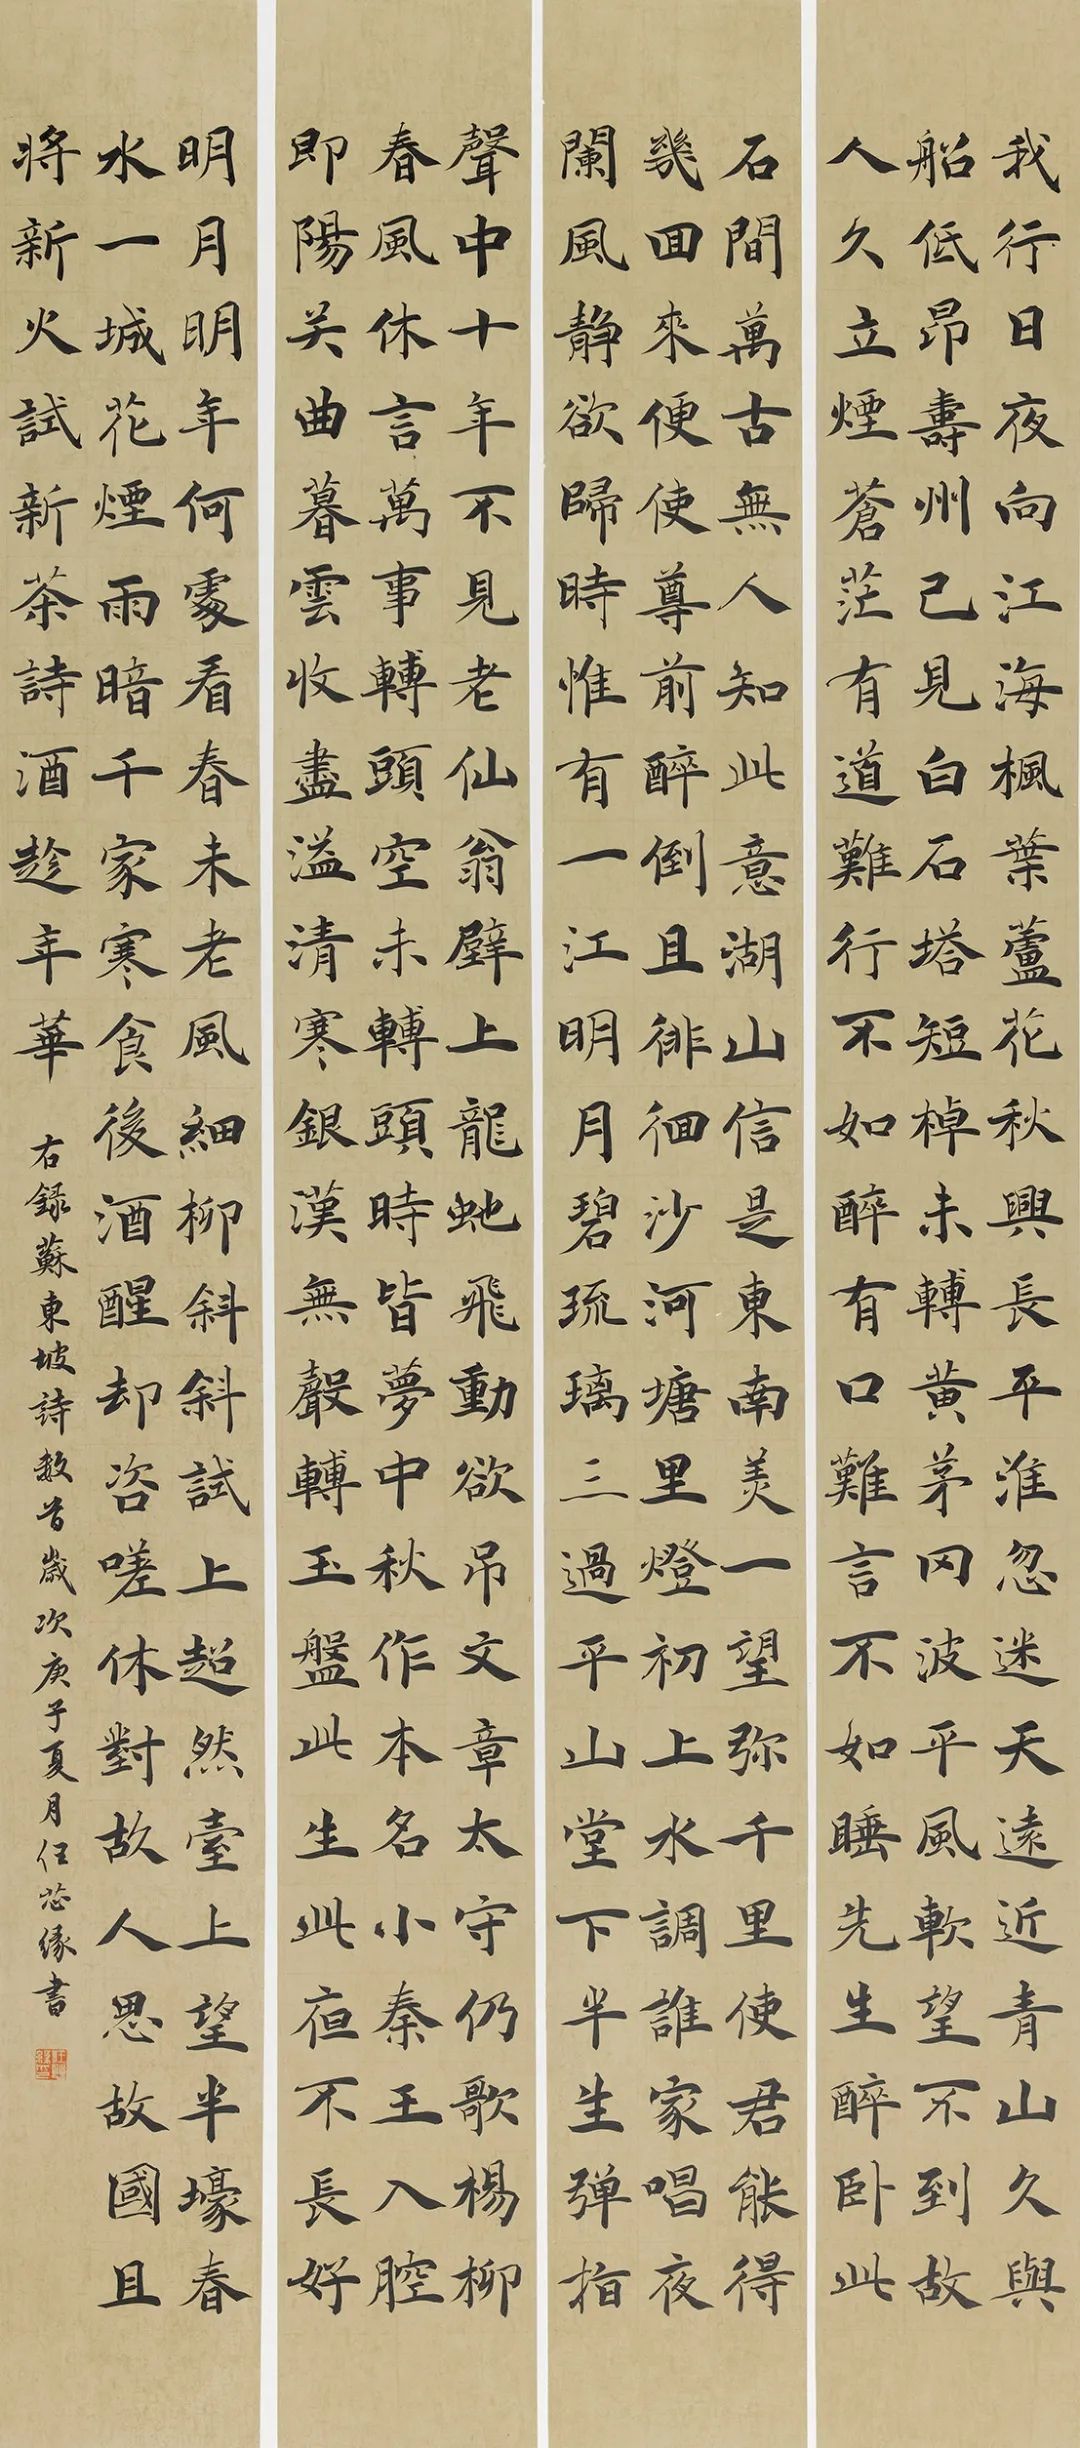 我行日夜向江海楓葉蘆花秋興長平淮忽迷天遠近青山久與
船低昂壽州已見白石塔短棹未轉黃茅冈波平風軟望不到故
人久立煙蒼茫有道難行不如醉有口難言不如睡先生醉卧此
石間萬古無人知此意湖山信是東南美一望弥千里使君能得
幾回來便使尊前醉倒且徘徊沙河塘里燈初上水調誰家唱夜
闌風静欲歸時惟有一江明月碧琉璃三過平山堂下半生弹指
聲中十年不見老仙翁壁上龍虵飛動欲吊文章太守仍歌楊柳
春風休言萬事轉頭空未轉頭時皆夢中秋作本名小秦王入腔
即陽关曲暮雲收盡溢清寒銀漢無聲轉玉盤此生此夜不長好
明月明年何處看春未老風細柳斜斜試上超然臺上望半壕春
水一城花煙雨暗千家寒食後酒醒却咨嗟休對故人思故國且
將新火試新茶詩酒趁年華
右録蘇東坡詩数首歲次庚子夏月任芯缘書